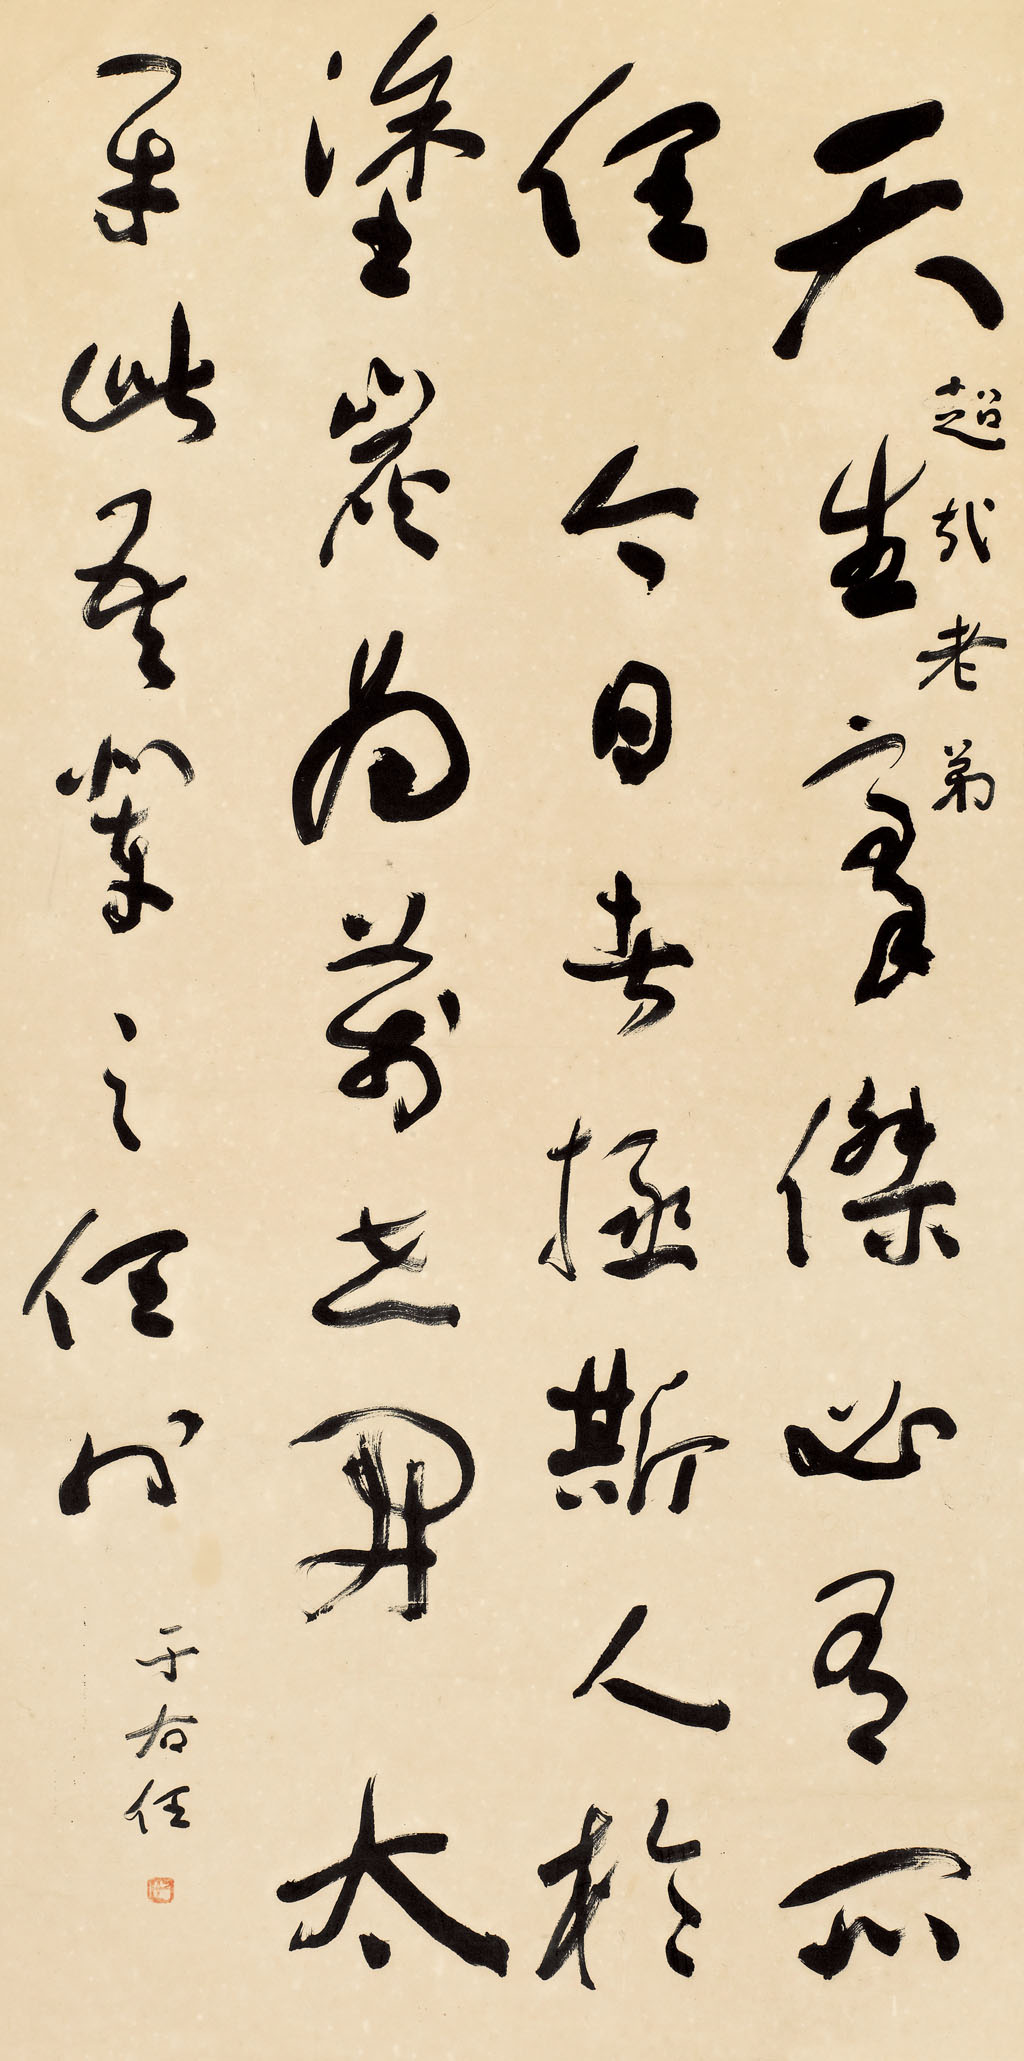 天生豪傑必有所
任今日者拯斯人於
塗炭為萬世開太
平此吾輩之任也
超哉老弟
于右任